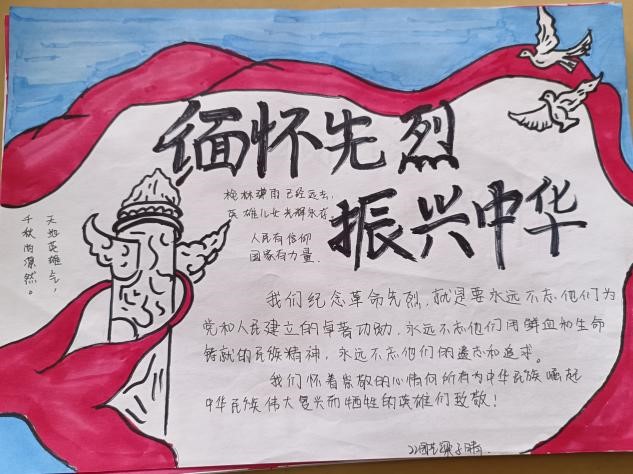 缅怀先烈
振兴中华
枪林弹雨已经远去,
英雄儿女光辉永存.
人民有信仰
国家有力量.
天地英雄气,
千秋尚凛然。
我们纪念革命先烈,就是要永远不忘他们为
党和人民建立的卓著功勋,永远不忘他们用鲜血和生命
铸就的民族精神,永远不忘他们的遗志和追求。
我们怀着崇敬的心情向所有为中华民族崛起
中华民族伟大复兴而牺牲的英雄们致敬!